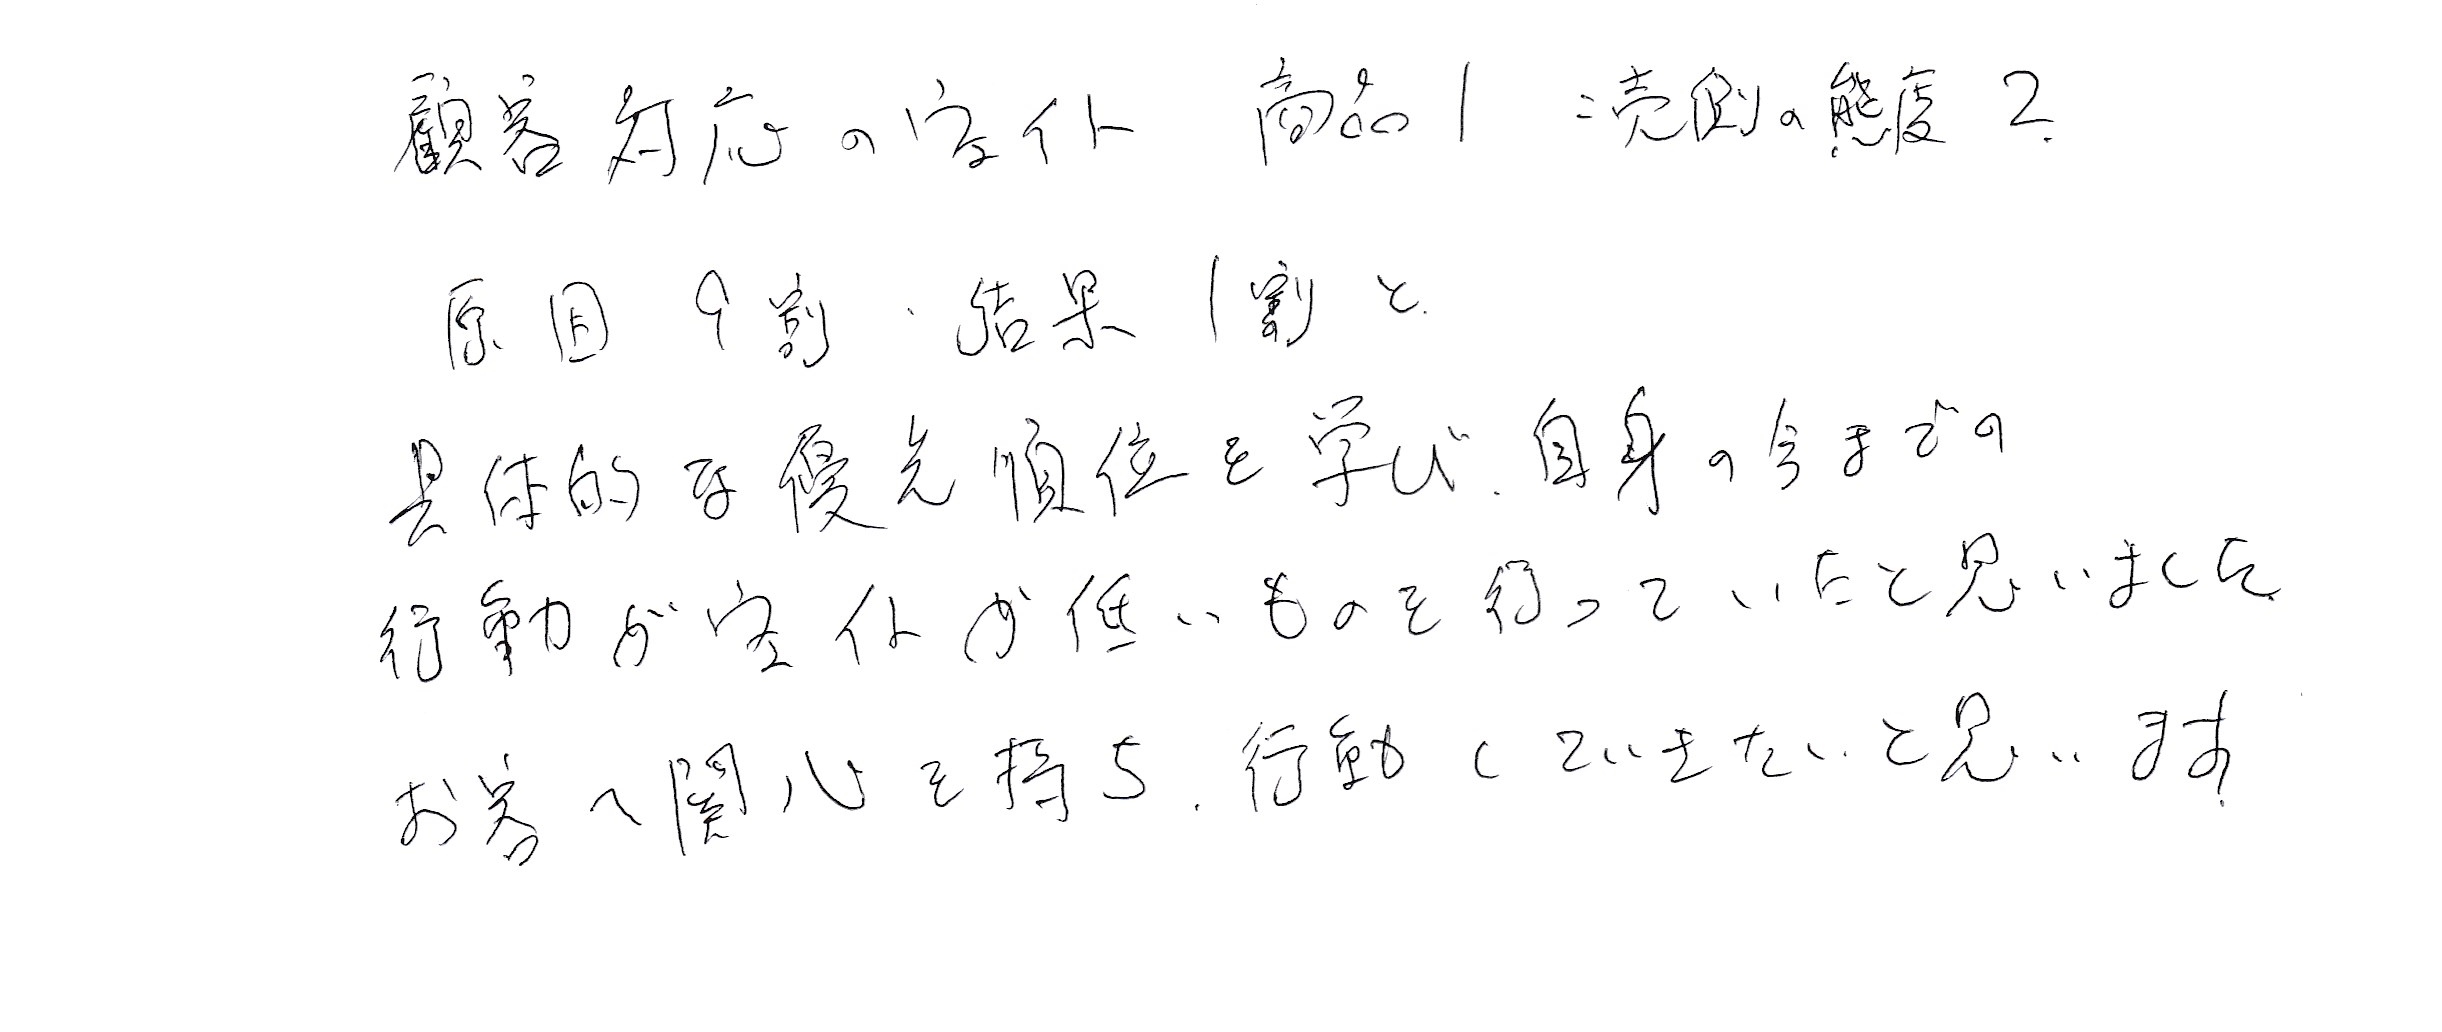 顧客対応のウエイト 商品1:売側の態度2.
原因9割・結果1割と
具体的な優先順位を学び、自身の今までの
行動がウエイトが低いものを行っていたと思いました
お客へ関心を持ち、行動していきたいと思います